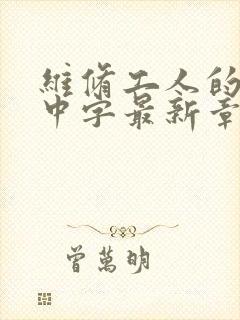 維脩工人的
中字最新章
曾萬明